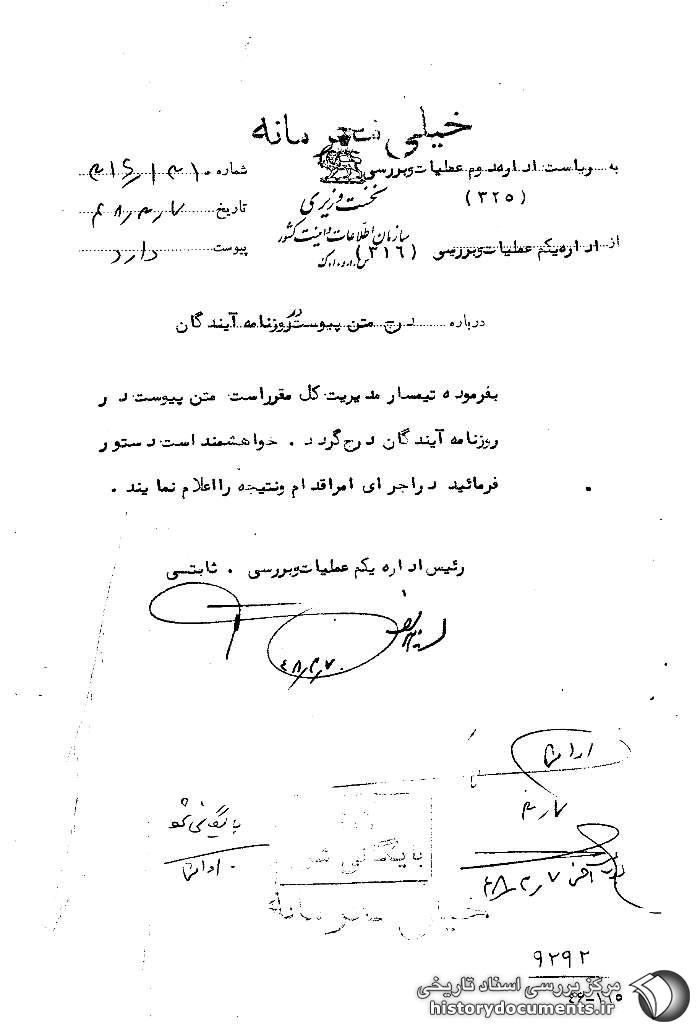 خیلی محرمانه
به ریاست اداره دوم عملیات و بررسی (۳۲۵)
نخست وزیری
سازمان اطلاعات و امنیت کشور
س.ا.و.ا.ک
شماره
تاریخ ۴۸٫۳٫۷
پیوست دارد
از اداره یکم عملیات و بررسی (۳۱۶)
درباره درج متن پیوست در روزنامه آیندگان
بفرموده تیمسار مدیریت کل مقرراست متن پیوست در
روزنامه آیندگان درج گردد . خواهشمند است دستور
فرمائید در اجرای امر اقدام و نتیجه را اعلام نمایند .
رئیس اداره یکم عملیات و بررسی . ثابتی
بایگانی شو
بایگانی شد
خیلی محرمانه
۹۲۹۲
مرکز بررسی اسناد تاریخی
historydocuments.ir